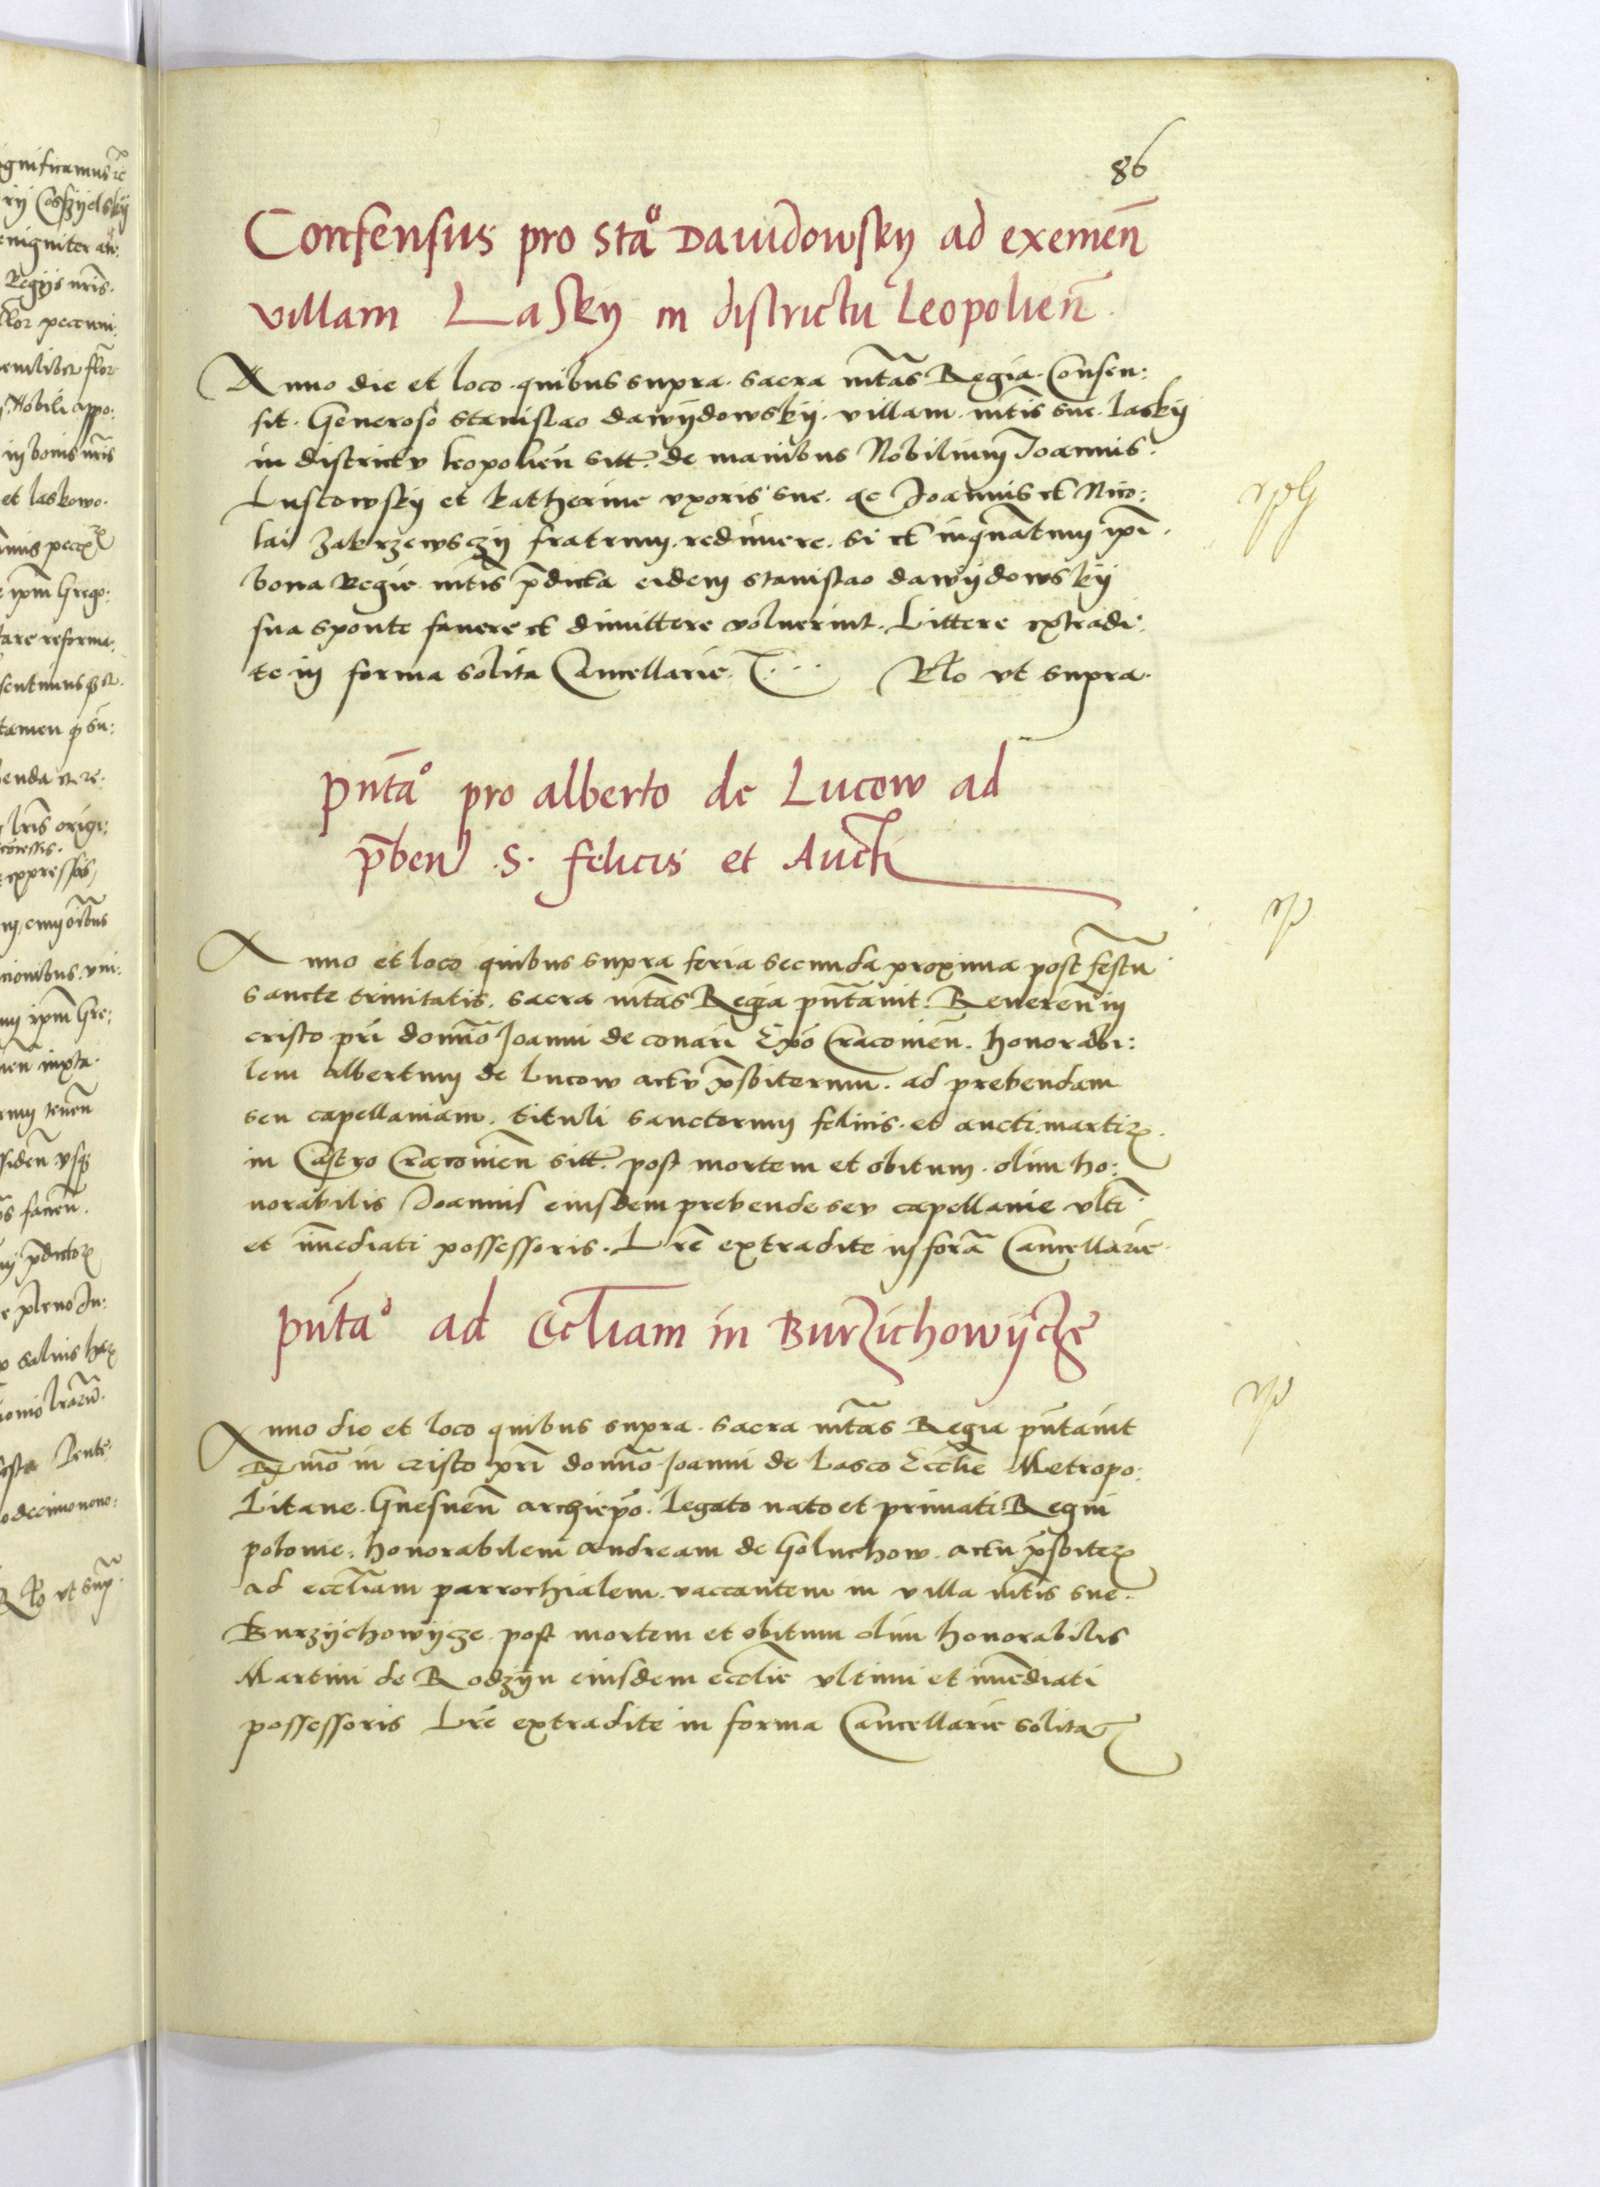 86
Consensus pro Stao Dauidowsky ad exemen̄
villam Lasky in districtu Leopolien̄.
Anno die et loco quibus supra. sacra mtas Regia Consen:
sit. Generoso Stanislao dawijdowskij. villam. mtis sue. Laskij
in districtu leopolien̄ sitt. de manibus Nobilium Joannis.
Luscowskij et Katherine vxoris sue. ac Joannis et Nico:
lai Zakrzewsczij fratrum. redimere. si et inquantum ipi.
bona Regie mtis p̄dicta eidem Stanislao dawijdowskij
sua sponte fauere et dimittere voluerint. Littere extradi:
te in forma solita Cancellarie. Rlo vt supra.
Pn̄tao pro alberto de Lucow ad
p̄ben S. felicis et Aucti
Anno et loco quibus supra feria secunda proxima post festū
sancte trinitatis. sacra mtas Regia pn̄tauit. Reueren̄ in
cristo pri domno Joanni de conari Ep̄o Cracouien̄. honorabi:
lem albertum de lucow actu p̄sbiterum. ad prebendam
seu capellaniam. tituli sanctorum felicis. et aucti martiꝝ.
in Castro Cracouien̄ sitt. post mortem et obitum. olim ho:
norabilis Joannis eiusdem prebende seu capellanie vlti
et im̄ediati possessoris. Lre extradite in for̄a Cancellarie.
Pn̄tao ad Eccliam in Burzichowijcze
Anno die et loco quibus supra. sacra mtas Regia pn̄tauit
Rmo in cristo pri domno Joanni de Lasco Ecclie Metropo:
Litane. Gnesnen̄ archiep̄o. Legato nato et primati Regni
polonie. honorabilem andream de Goluchow. actu p̄sbiteꝝ
ad eccliam parrochialem. vaccantem in villa mtis sue.
Burzijchowijcze. post mortem et obitum olim honorabilis
Martini de Rodzijn eiusdem ecclie vltimi et im̄ediati
possessoris Lre extradite in forma Cancellarie solita